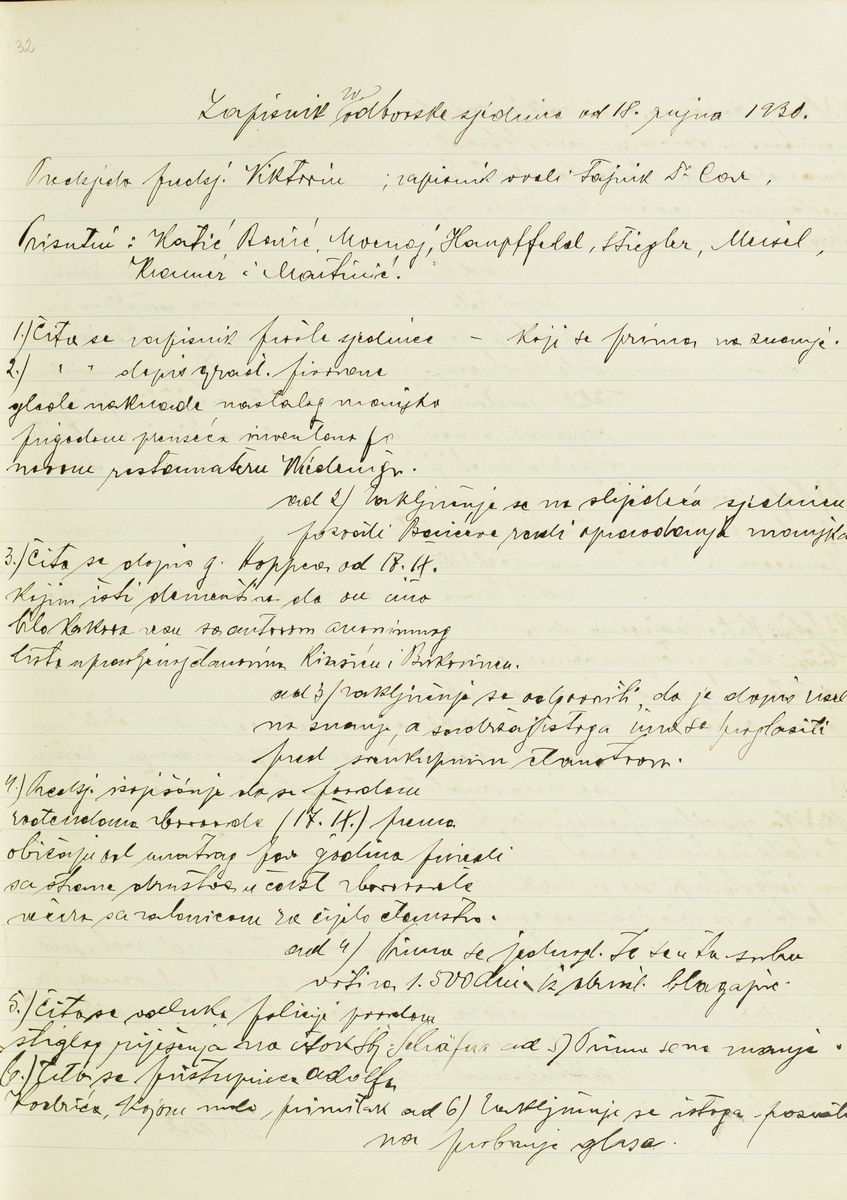 32
Zapisnik odborske sjednice od 18. rujna 1930.
Predsjeda predsj. Viktorin ; zapisnik vodi Tajnik Dr Car,
Prisutni: Katić Banić, Mocnaj, Hampffeld, Stiegler, Meisel,
Kramer i Martinić.
1.) Čita se zapisnik prošle sjednice – koji se prima na znanje.
2.) " " dopis građ. pivovare
glede naknade nastalog manjka
prigodom prenosa inventara
novom restaurateru
ad 2) Zaključuje se na slijedeću sjednicu
pozvati radi opravdanja manjka
3.) Čita se dopis g. Hoppea od 17. IX.
kojim isti dementira da on ima
bilo kakova veze sa autorom anonimnog
lista upravljenog članovima i
ad 3) zaključuje se odgovoriti, da je dopis uzet
na znanje, a sadržaj istoga ima se proglasiti
pred sveukupnim članstvom.
4.) Predsj. izvješćuje da se povodom
rođendana zborovođe (17. IX.) prema
običaju od unatrag par godina priredi
sa strane društva u čast zborovođe
večera sa zakuskom za cijelo članstvo.
ad 4) Prima se jednogl. te se u tu svrhu
votira 1.500 din iz društ. blagajne.
5.) Čita se odluka policije povodom
stiglog rješenja na utok Stj. Schäfera ad 5) Prima se na znanje.
6.) Čita se pristupnica Adolfa
kojom moli primitak ad 6) Zaključuje se istoga pozvati
na probanje glasa.